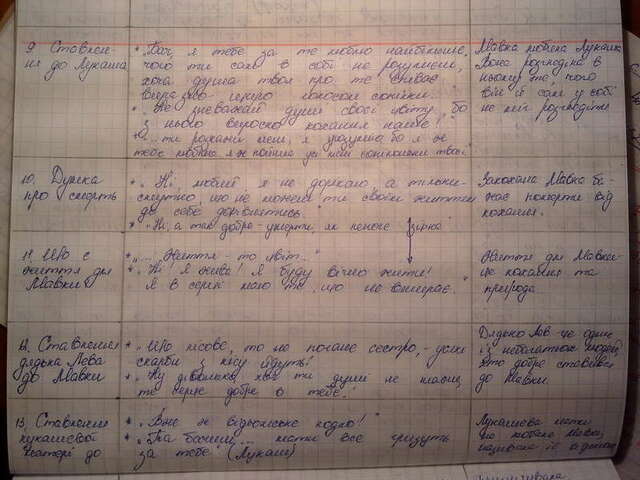 9. Ставлен-
ня до Лукаша
"Бач, я тебе за те люблю найбільше,
чого ти сам в собі не розумієш,
хоча душа твоя про те співає
виразно-щиро голосом сопілки..."
"Не зневажай душі своєї цвіту, бо
з нього виросло кохання наше!"
"... ти розкажи мені, я зрозумію, бо я ж
тебе люблю я ж пойняла усі пісні сопілоньки твоєї"
Мавка любила Лукаша
Вона розгледіла в
ньому те, чого
він й сам у собі
не міг розгледіти
10. Думка
про смерть
"Ні, любий, я не дорікаю, а тільки -
смутно, що не можеш ти своїм життям
до себе дорівнятись"
"Ні, а так добре - умерти, як летюча зірка"
Закохана Мавка ба-
жає померти від
кохання.
11. Що є
життя для
Мавки
"... Життя - то
"Ні! Я жива! Я буду вічно жити!
Я в серці маю те, що не вмирає."
Життя для Мавки -
це кохання та
природа
12. Ставлення
дядька Лева
до Мавки
"Що лісове, то не погане, сестро, - усякі
скарби з лісу йдуть!"
"Ну дівонько, хоч ти душі не маєш,
те серце добре в тебе."
Дядько Лев це один
із небагатьох людей,
хто добре ставився
до Мавки.
13. Ставлення
Лукашевої
матері до
"Вже ж відьомське кодло!"
"Та бачиш,... мати все гризуть
за тебе" (Лукаш)
Лукашева мати
не любила Мавку,
називала її відьмою